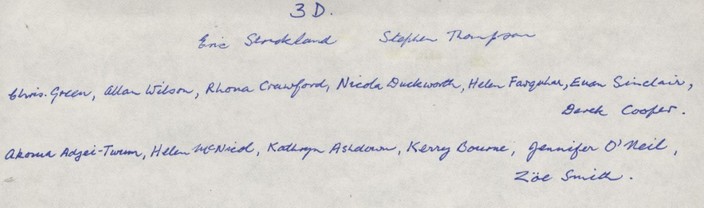 3 D.
Eric Strickland Stephen Thompson
Chris. Green, Allan Wilson, Rhona Crawford, Nicola Duckworth, Helen Farquhar, Euan Sinclair,
Derek Cooper.
Akoma Adjei-Twum, Helen McNicol, Kathryn Ashdown, Kerry Bourne, Jennifer O'Neil,
Zöe Smith.